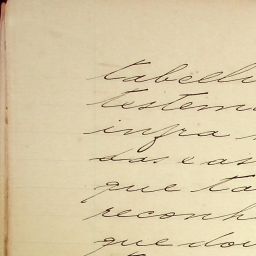 tabelli
testem
infra
das e as
que ta
reconh
que dou